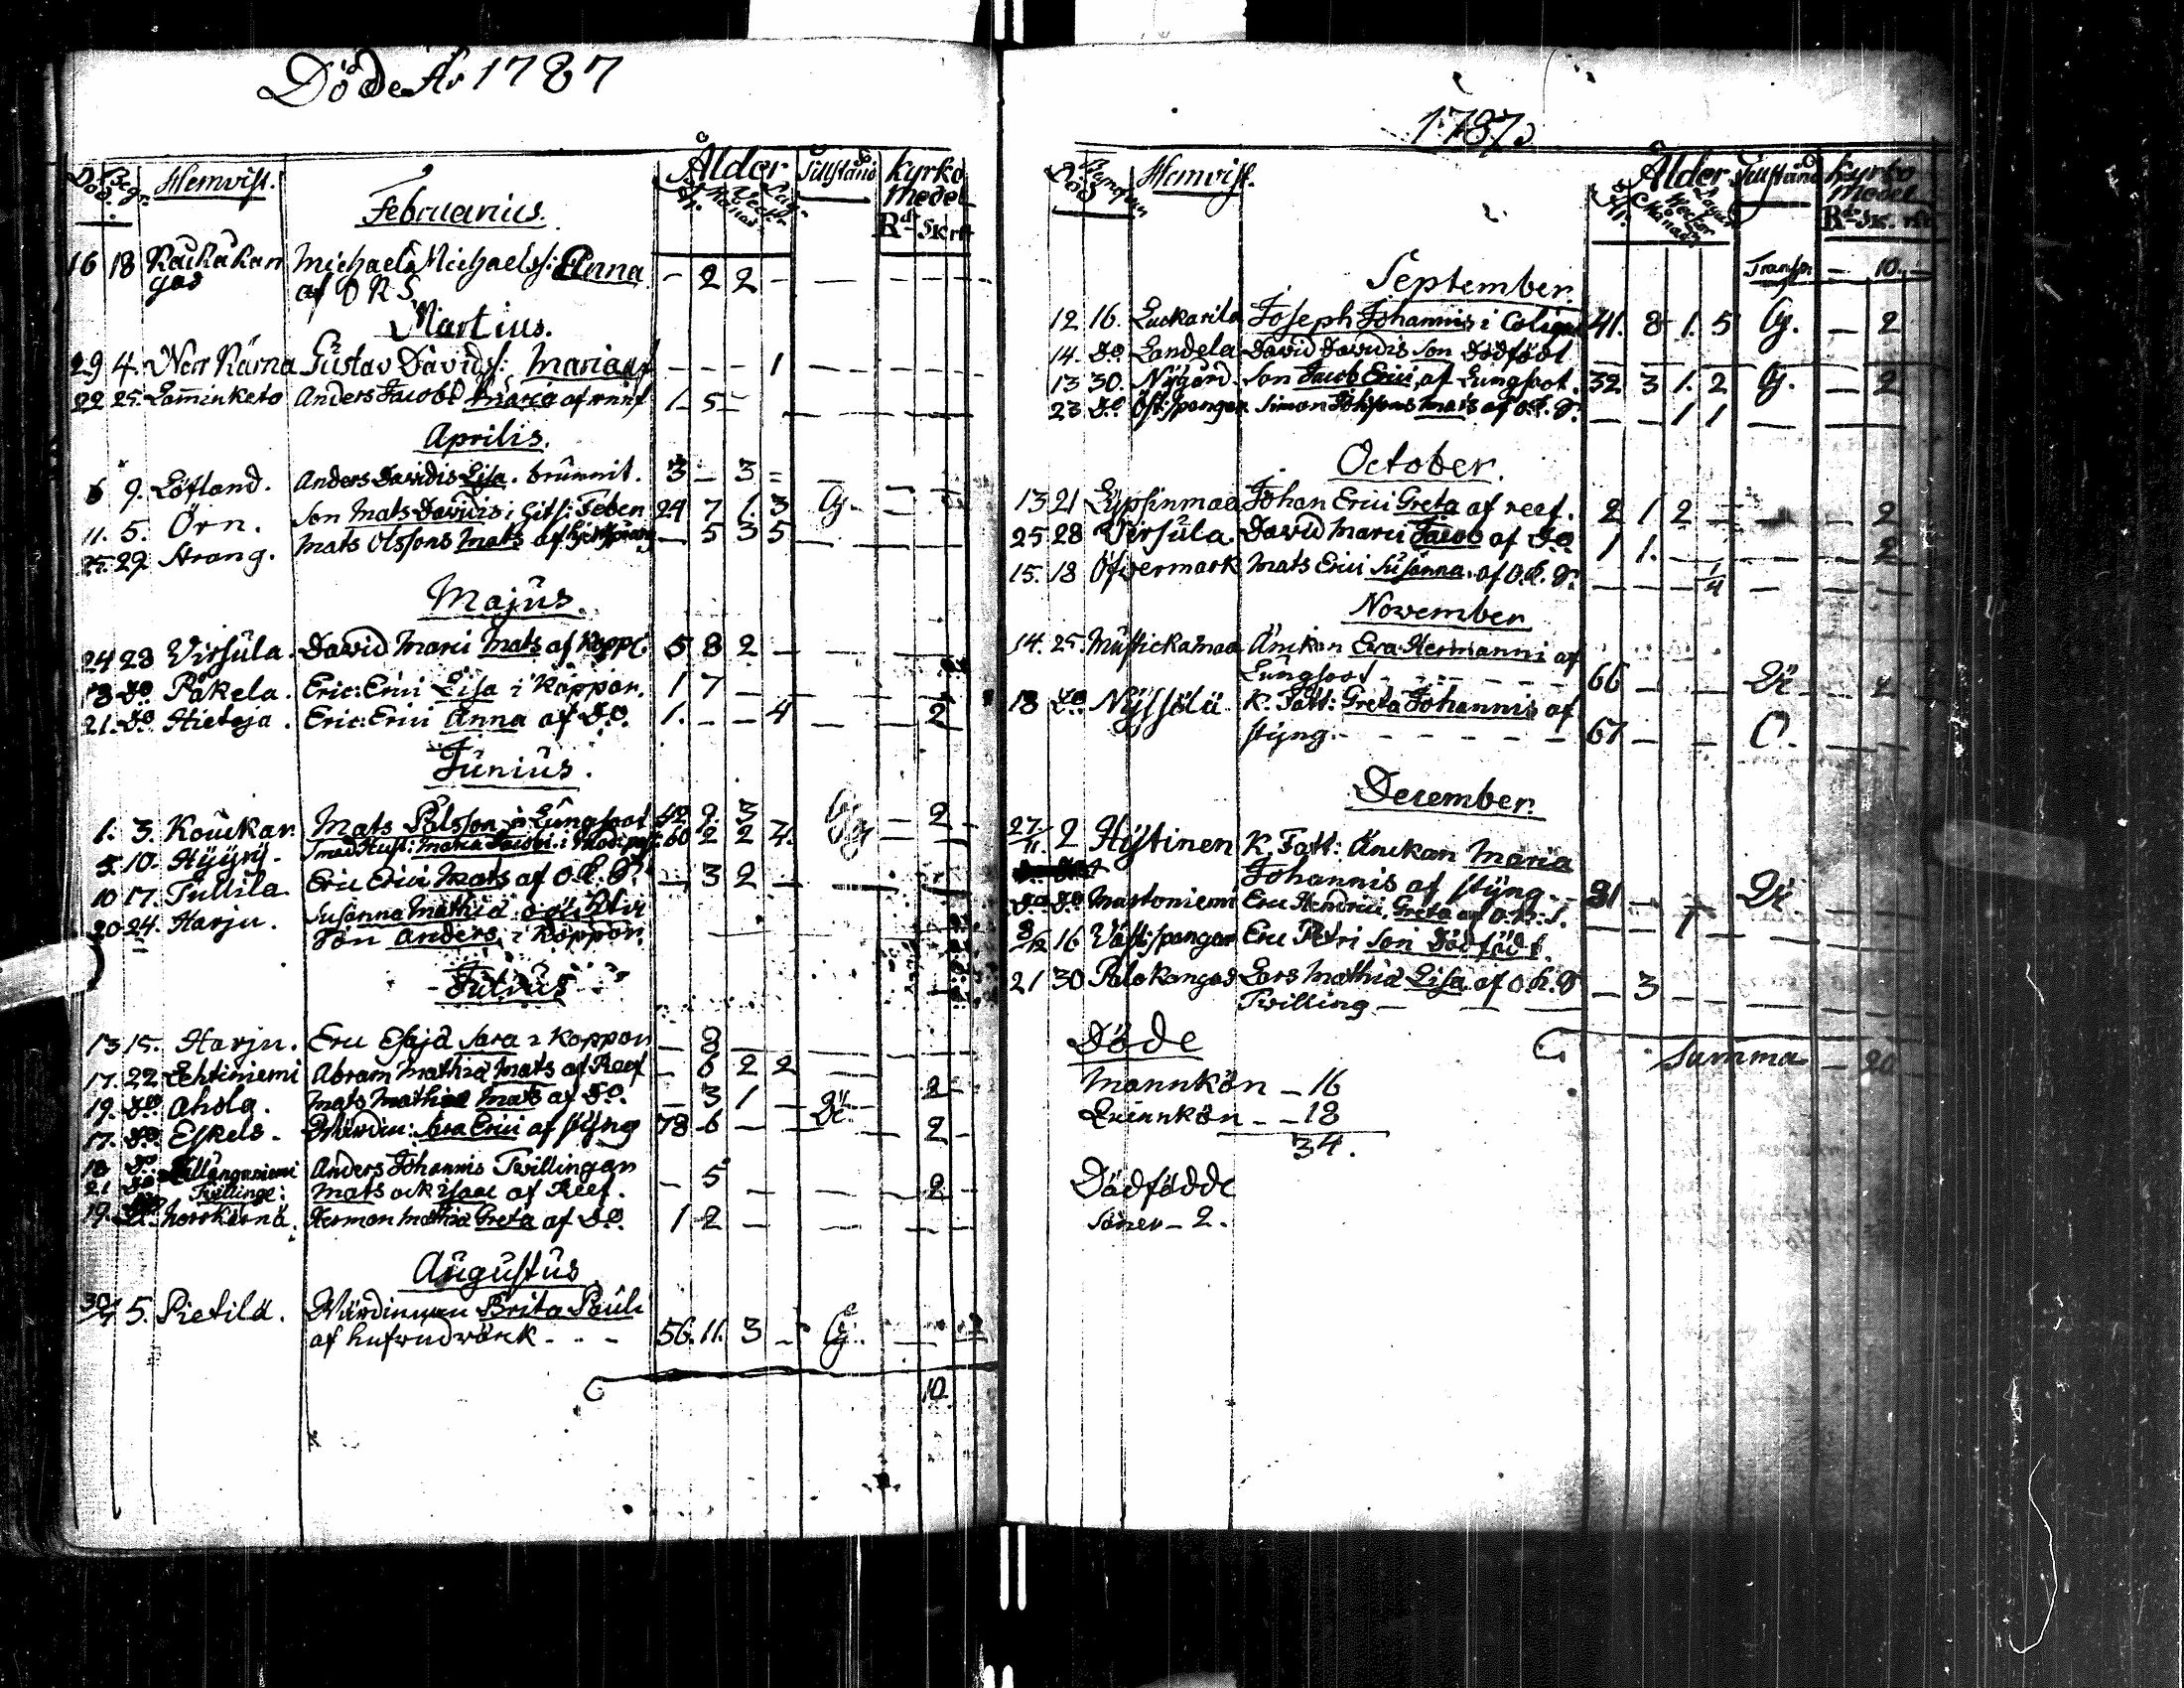 Döde År 1787
Död. Begr. Hemvist. Ålder Tillstånd Kyrko Medel
År. Månad. Weck. Dag. Rd. Sk. rst
Februarius.
16 18 Raukakangas Michael Michaelss: Anna - 2 2 - - - - -
af O K S
Martius.
29 4. Nerr Kärna Gustav Davids: Maria af - - - 1 - - - -
22 25. Lamminketo Anders Jacobi Maria af 1 - 5 - - - - -
Aprilis.
6 9. Löfland. Anders Davidis Lisa. brunnit. 3 - 3 -
11. 5. Örn. Son Mats Davidis i Hits: Feben 24 7 1. 3 G. - -
25. 29 Strang. Mats Olssons Mats af - 5 3 5 - - -
Majus.
24 28 Virsula. David Marci Mats af Koppor 5 8 2 - - - -
18 Do Påkela. Eric: Erici Lisa i Koppor. 1 7 - - - - -
21. Do Hietoja. Eric: Erici Anna af Do. 1. - - 4 - - 2
Junius.
1. 3. Kouckar. Mats Pålsson i Lungsoot 42 9. 3 G - 2 -
5. 10. Hyyry. Maria Jacobi i 60 2 2 4. G -
10 17. Tullila Eric Erici Mats af O. K. S. - 3 2 - - -
20 24. Harju. Susanna Mathiæ oäckta
Son Anders i Koppor. - - -
Julius
13 15. Harju. Eric Esajæ Sara i Koppor - 8 - - - - -
17. 22 Lehtiniemi Abram Mathiæ Mats af Reef - 6 2 2 -
19. Do Ahola. Mats Mathiæ Mats af Do. - 3 1 - - 2
17. Do. Eskels. Wärdin: Sara Erici af styng 78 6 - - Di. - 2 -
18 Do Anders Johannis Twillingar
21 Do Twillinge: Mats ock Isaac af Reef. - 5 - - - 2 -
19. Do. Norrkärnä. Herman Mathiæ Greta af Do. 1 2 - - - - -
Augustus
30/7 5. Pietilä. Wärdinnan Brita Pauli
af hufwudwärk - - - 56. 11. 3 - G. - 2
10
1787
Död Begrafn Hemvist. Ålder Tillstånd Kyrko Medel
År. Månad Weckor Dagar Rd. Sk. rst
Transp - 10. -
September.
12 16. Luckarila Joseph Johannis i Colique 41. 8 1. 5 G. - 2
14. Do. Landela David Davidis Son Dödfödt - - -
13 30. Nygård. Son Jacob Erici af Lungsoot. 32 3 1. 2 G. - 2
23 Do. Öst: spangar Simon Johssons Mats af O. K. S. - - 1 1 - -
October.
13 21 Lyssinmaa Johan Erici Greta af reef. 2 1 2 - - - 2
25 28 Virsula David Marci Jacob af Do 1 1. - - - - 2
15. 18 Öfvermark Mats Erici Susanna af O. K. S. - - 1/4 - - -
November
14. 25. Mustickamaa Änckan Eva Hermanni af
Lungsoot - - - - - 66 - - Di - 2
18 Do. Nyssölä K. Fatt: Greta Johannis af
styng. - - - - - - 67 - - O. - -
December.
27/11. 2 Hystinen K. Fatt: Änckan Maria
Johannis af styng - 81 - - Di. - -
Do Do Mastoniemi Eric Hendrici Greta af O. K. S. - - 1 - - -
8/12 16 Väst: spangar Eric Petri Son Dödfödt.
21 30 Palokangas Lars Mathiæ Lisa af O. K. S
Twilling - - - - 3 - - - - -
Döde Summa - 20 -
Mannkön - 16
Quinnkön - - 18
34.
Dödfödde
Söner - 2.